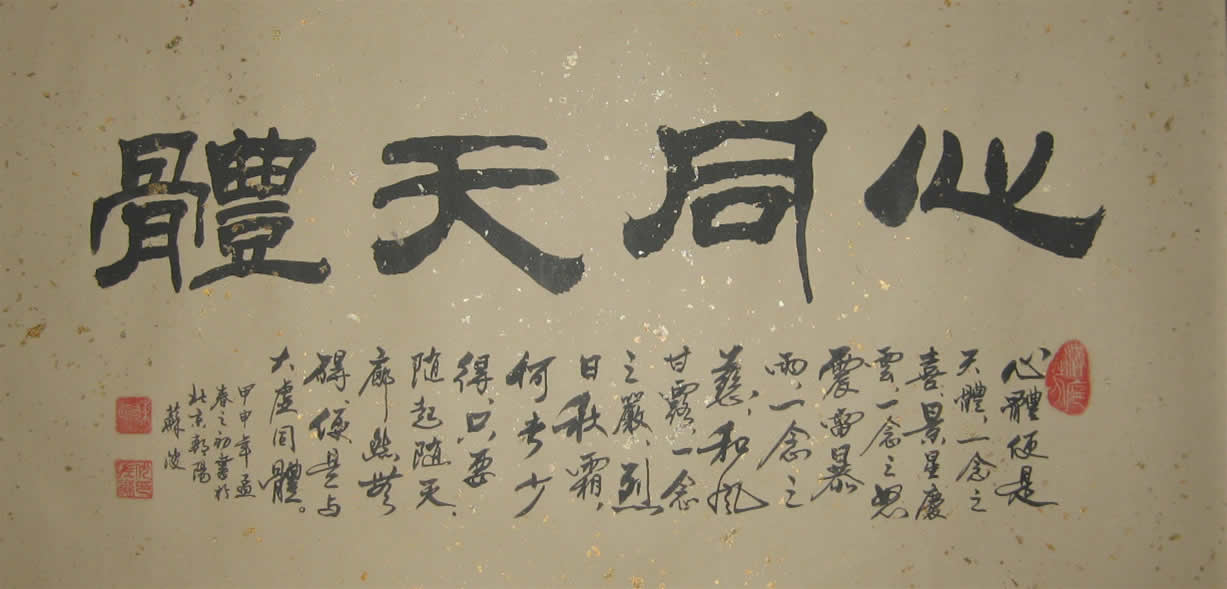 心同天體
心體便是
天體,一念之
喜,景星慶
雲,一念之怒
震雷暴
雨,一念之
慈,和風
甘露,一念
之嚴,烈
日秋霜,
何者少
得,只要
随起随灭,
廓然無
碍,便是与
大虚同體。
甲申年孟
春之初書於
北京朝陽
蘇波